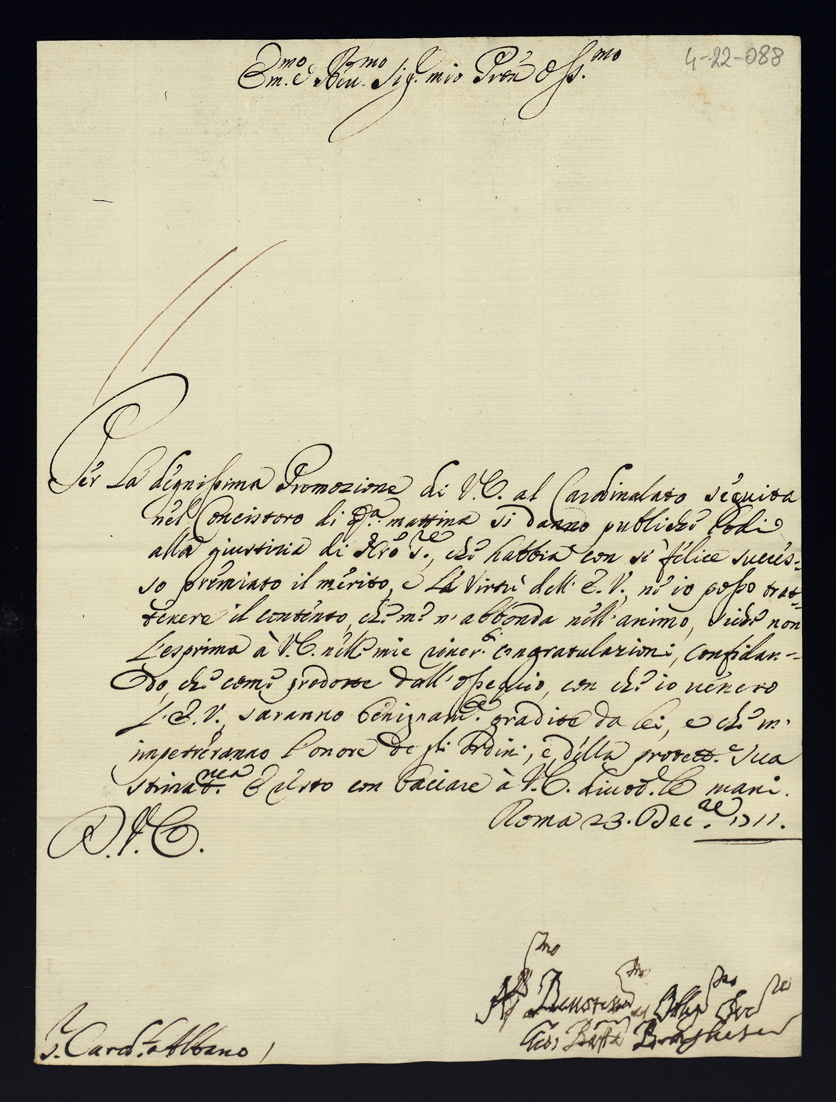 Em.mo e Reu.mo Sig.r mio Pron Oss.mo
4-22-088
Per La degnissima Promozione di V.E. al Cardinalato seguita
nel Concistoro di q.ta mattina si danno publiche lodi
alla giustizia di Nro S.re, che habbia con sì felice succes-
so premiato il merito, e La Virtù dell' E.V., ne io posso trat-
tenere il contento, che me n'abbonda nell'animo, siche non
L'esprima à V.E. nelle mie congratulazioni, confidan-
do che come prodotte dall'ossequio, con che io venero
L'E.V., saranno benignam.te gradite da lei, e che m'
impetreranno l'onore de gli Ordini, e della protett.e sua
E resto con bacciare à V.E. le mani.
Roma 23. Dec.re 1711.
D.V.E.
Aff.mo Ser.re
Gio: Batta Borghese
S. Card.l Albano